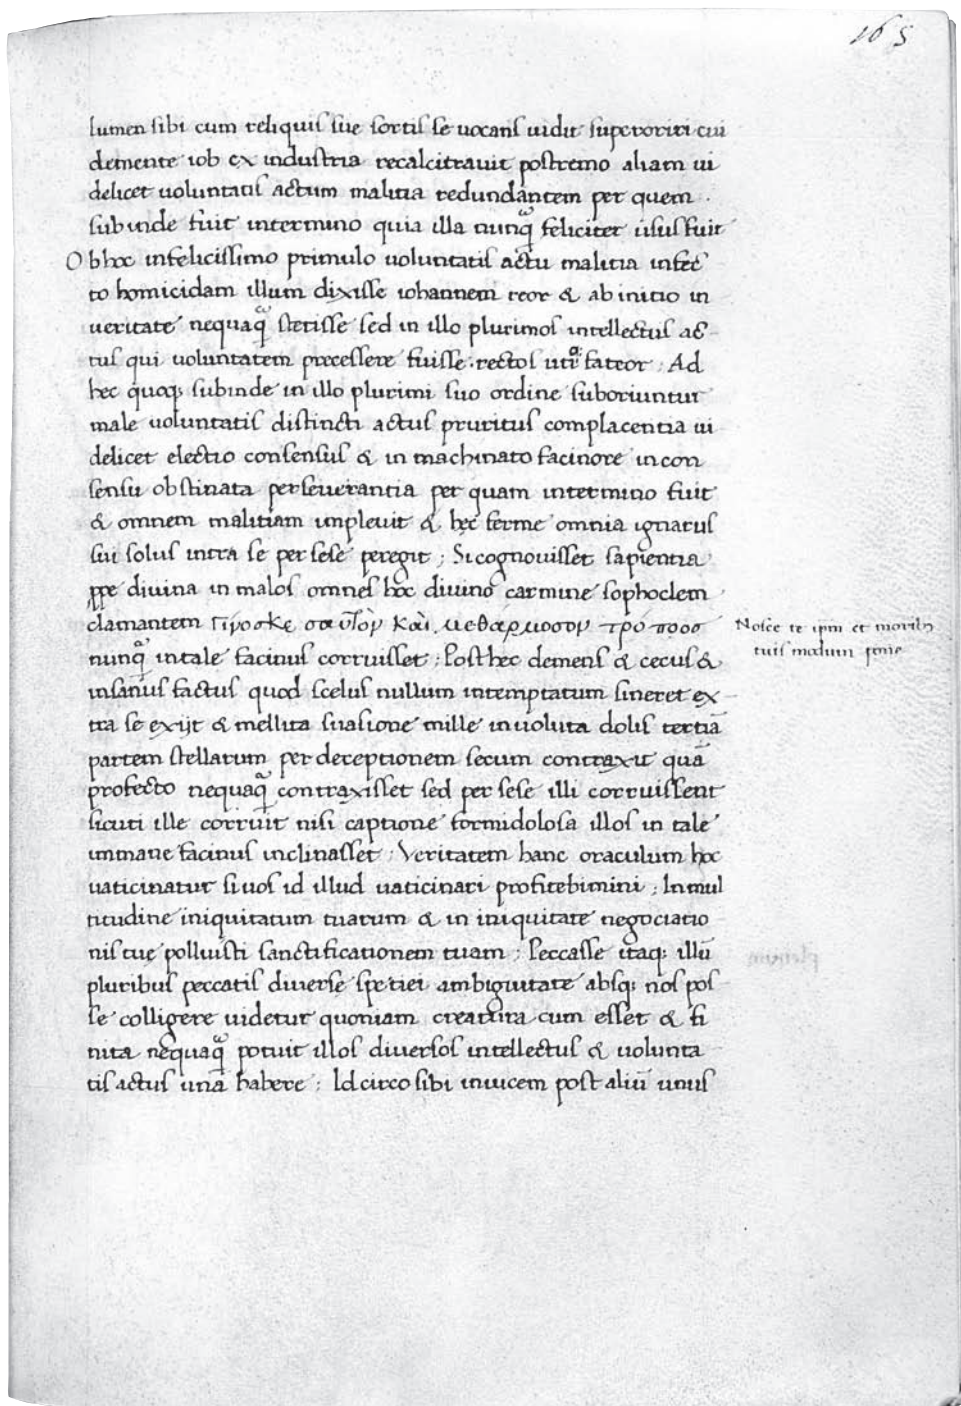 165
lumen sibi cum reliquis sue sortis se vocans vidit superoriri cui
demente iob ex industria recalcitravit postremo aliam vi
delicet voluntatis actum malitia redundantem per quem
subinde fuit intermino quia illa nunq̃ feliciter usus fuit
Ob hoc infelicissimo primulo voluntatis actu malitia infec
to homicidam illum dixisse iohannem reor & ab initio in
veritate nequaq̃ stetisse sed in illo plurimos intellectus ac
tus qui voluntatem precessere fuisse rectos fateor : Ad
hec quoq; subinde in illo plurimi suo ordine suboriuntur
male voluntatis distincti actus pruritus complacentia vi
delicet electio consensus & in machinato facinore in con
sensu obstinata perseverantia per quam intermino fuit
& omnem malitiam implevit & hęc ferme omnia ignarus
sui solus intra se per sese peregit ; Si cognovisset sapientia
ppe divina in malos omnes hoc divino carmine sophoclem
clamantem Γίνοσκε σαυτὸν καὶ μεθάρμοσον τρόπους
nunq̃ in tale facinus corruisset : Post hec demens & cecus &
insanus factus quod scelus nullum intemptatum sineret ex
tra se exijt & mellita suasione mille involuta dolis tertiā
partem stellarum per deceptionem secum contraxit quā
profecto nequaq̃ contraxisset sed per sese illi corruissent
sicuti ille corruit nisi captione formidolosa illos in tale
immane facinus inclinasset : Veritatem hanc oraculum hoc
vaticinatur si vos id illud vaticinari profitebimini ; In mul
titudine iniquitatum tuarum & in iniquitate negociatio
nis tuę polluisti sanctificationem tuam ; Peccasse itaq; illū
pluribus peccatis diverse spetiei ambiguitate absq; nos pos
se colligere videtur quoniam creatura cum esset & fi
nita nequaq̃ potuit illos diversos intellectus & volunta
tis actus unā habere : Idcirco sibi invicem post aliū unus
Nosce te ipm et moribus
tuis modum pone